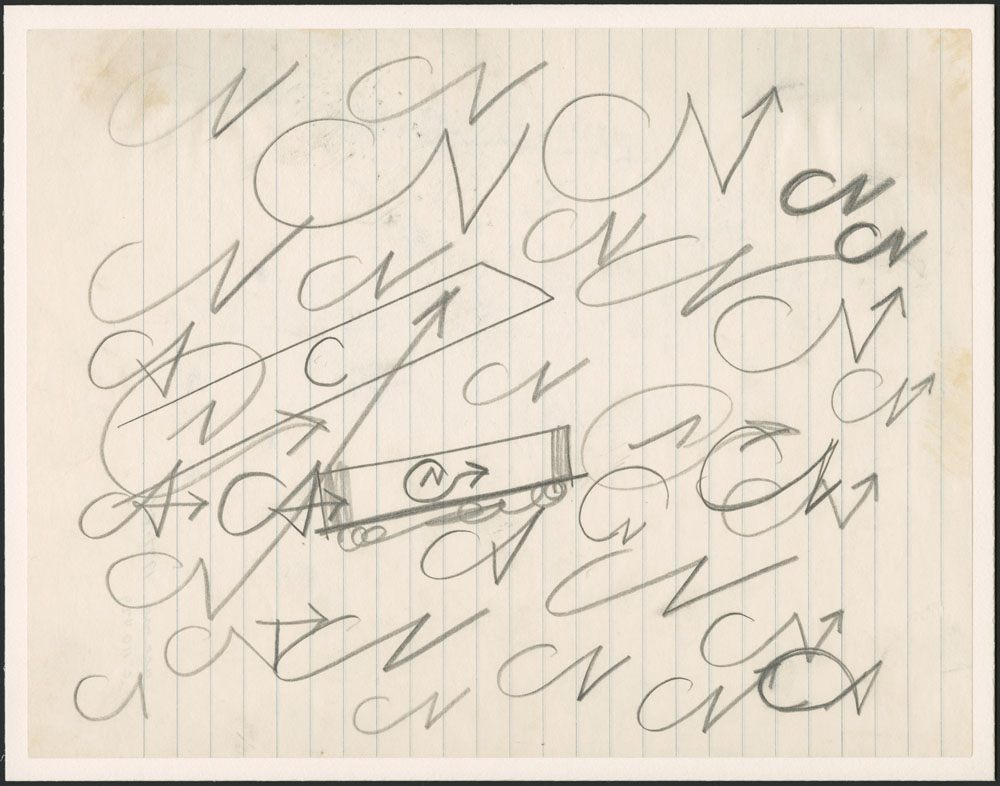 CN CN
CN CN CN
CN
CN CN CN CN
CN C CN
CN CN CN
CN CN
CN CN N CN CN
CN CN CN
CN CN CN CN
CN CN CN CN